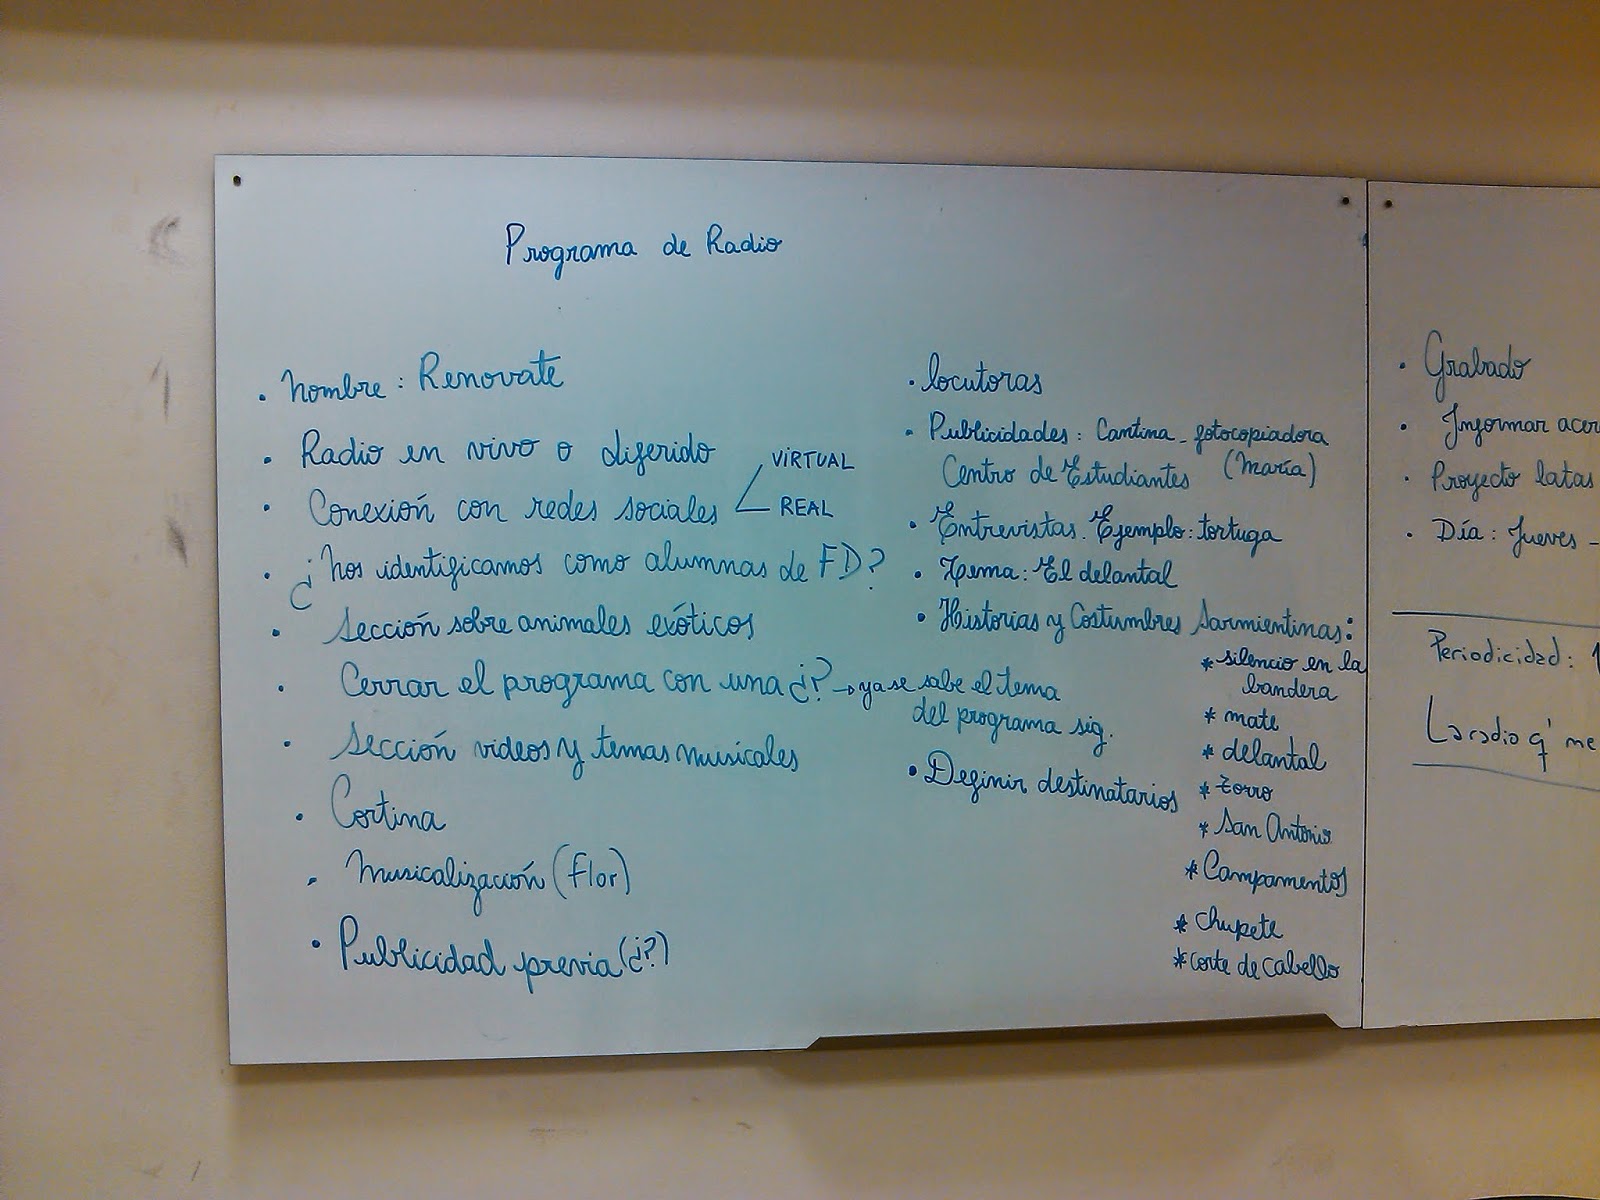 Programa de Radio
• Nombre: Renovate
• Radio en vivo o diferido
• Conexión con redes sociales
VIRTUAL
REAL
• ¿Nos identificamos como alumnas de FD?
• Sección sobre animales exóticos
• Cerrar el programa con una ¿? → ya se sabe el tema
del programa sig.
• Sección videos y temas musicales
• Cortina
• Musicalización (Flor)
• Publicidad previa (¿?)
• Locutoras
• Publicidades: Cantina - fotocopiadora
Centro de Estudiantes (María)
• Entrevistas. Ejemplo: tortuga
• Tema: El delantal
• Historias y Costumbres Sarmientinas:
* silencio en la
bandera
* mate
* delantal
* zorro
* San Antonio
* Campamentos
* chupete
* corte de cabello
• Definir destinatarios
• Grabado
• Informar
• Proyecto latas
• Día: Jueves -
Periodicidad:
La radio q' me